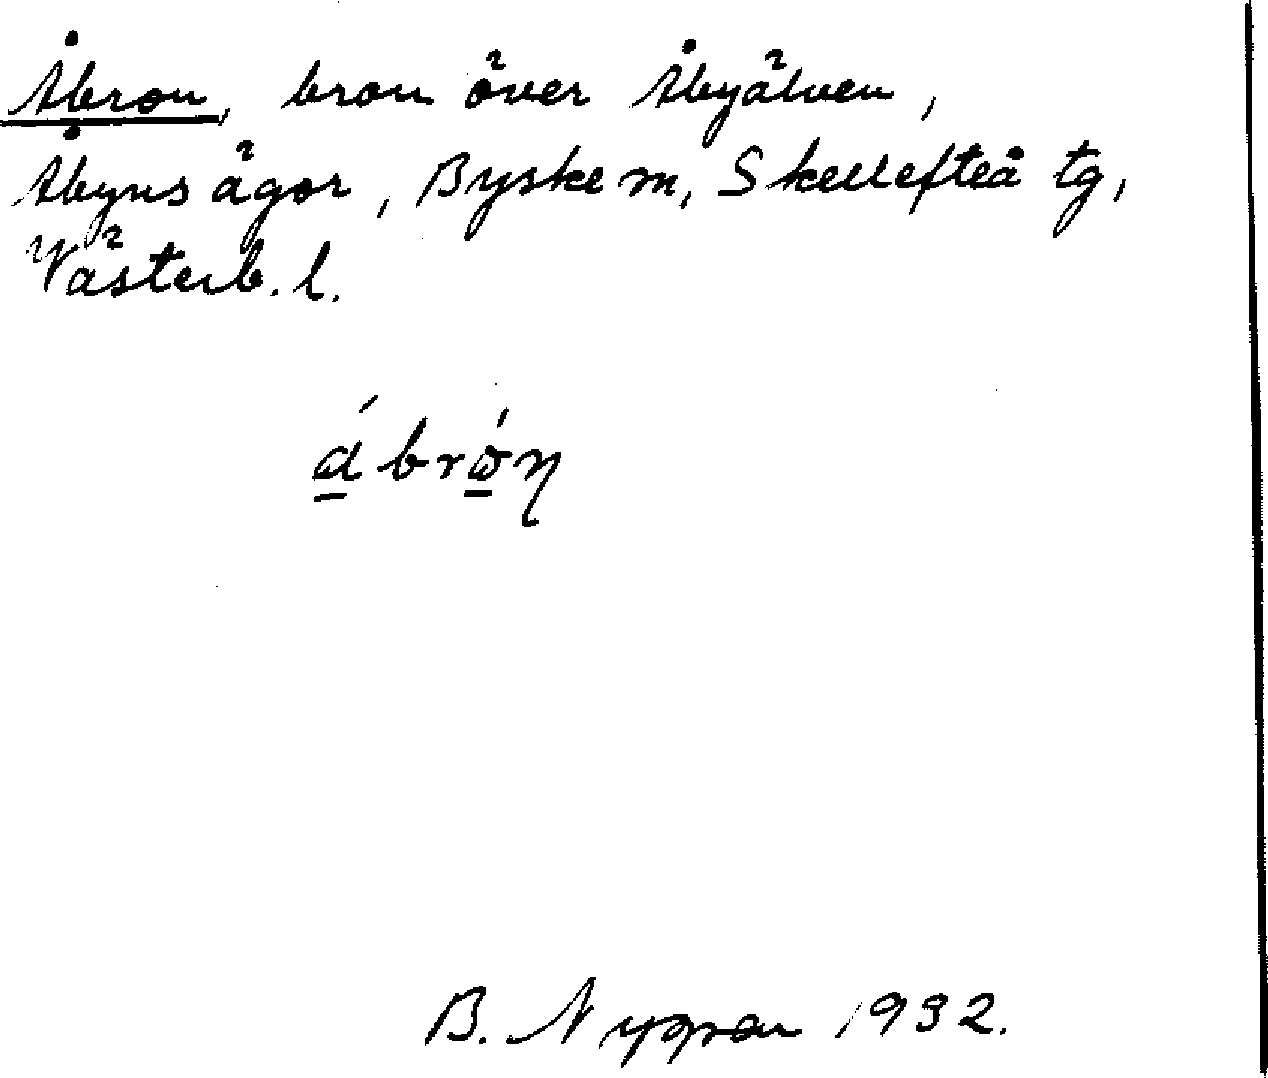 Åbron, bron över Åbyälven,
Åbyns ägor, Byske m, Skellefteå tg,
Västerb. l.
B. Nygren 1932.